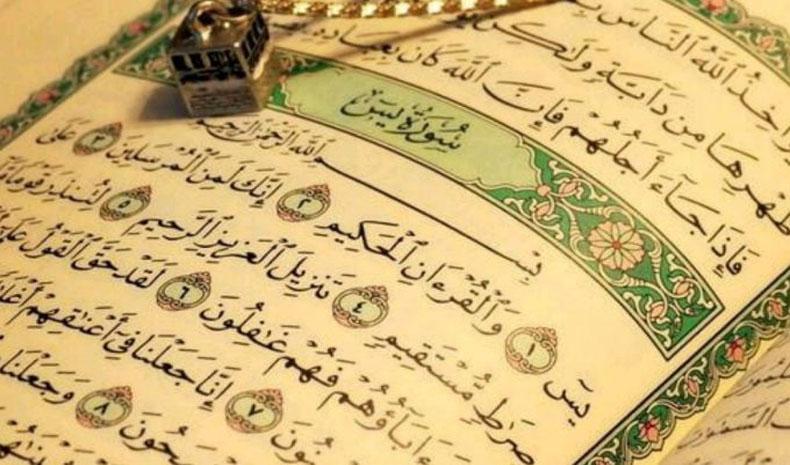 اخِذُ ٱللَّهُ ٱلنَّاسَ
ظَهْرِهَا مِن دَآبَّةٍ وَلَٰكِن
فَإِذَا جَآءَ أَجَلُهُمْ فَإِنَّ ٱللَّهَ كَانَ بِعِبَادِهِ
سُورَةُ يسٓ
بِسْمِ ٱللَّهِ ٱلرَّحْمَٰنِ ٱلرَّحِيمِ
يسٓ ١ وَٱلْقُرْءَانِ ٱلْحَكِيمِ ٢ إِنَّكَ لَمِنَ ٱلْمُرْسَلِينَ ٣ عَلَىٰ
صِرَٰطٍ مُّسْتَقِيمٍ ٤ تَنزِيلَ ٱلْعَزِيزِ ٱلرَّحِيمِ ٥ لِتُنذِرَ قَوْمًا مَّآ
ءَابَآؤُهُمْ فَهُمْ غَٰفِلُونَ ٦ لَقَدْ حَقَّ ٱلْقَوْلُ عَلَىٰٓ
نُونَ ٧ إِنَّا جَعَلْنَا فِىٓ أَعْنَٰقِهِمْ أَغْلَٰ
حُونَ ٨ وَجَعَلْنَا